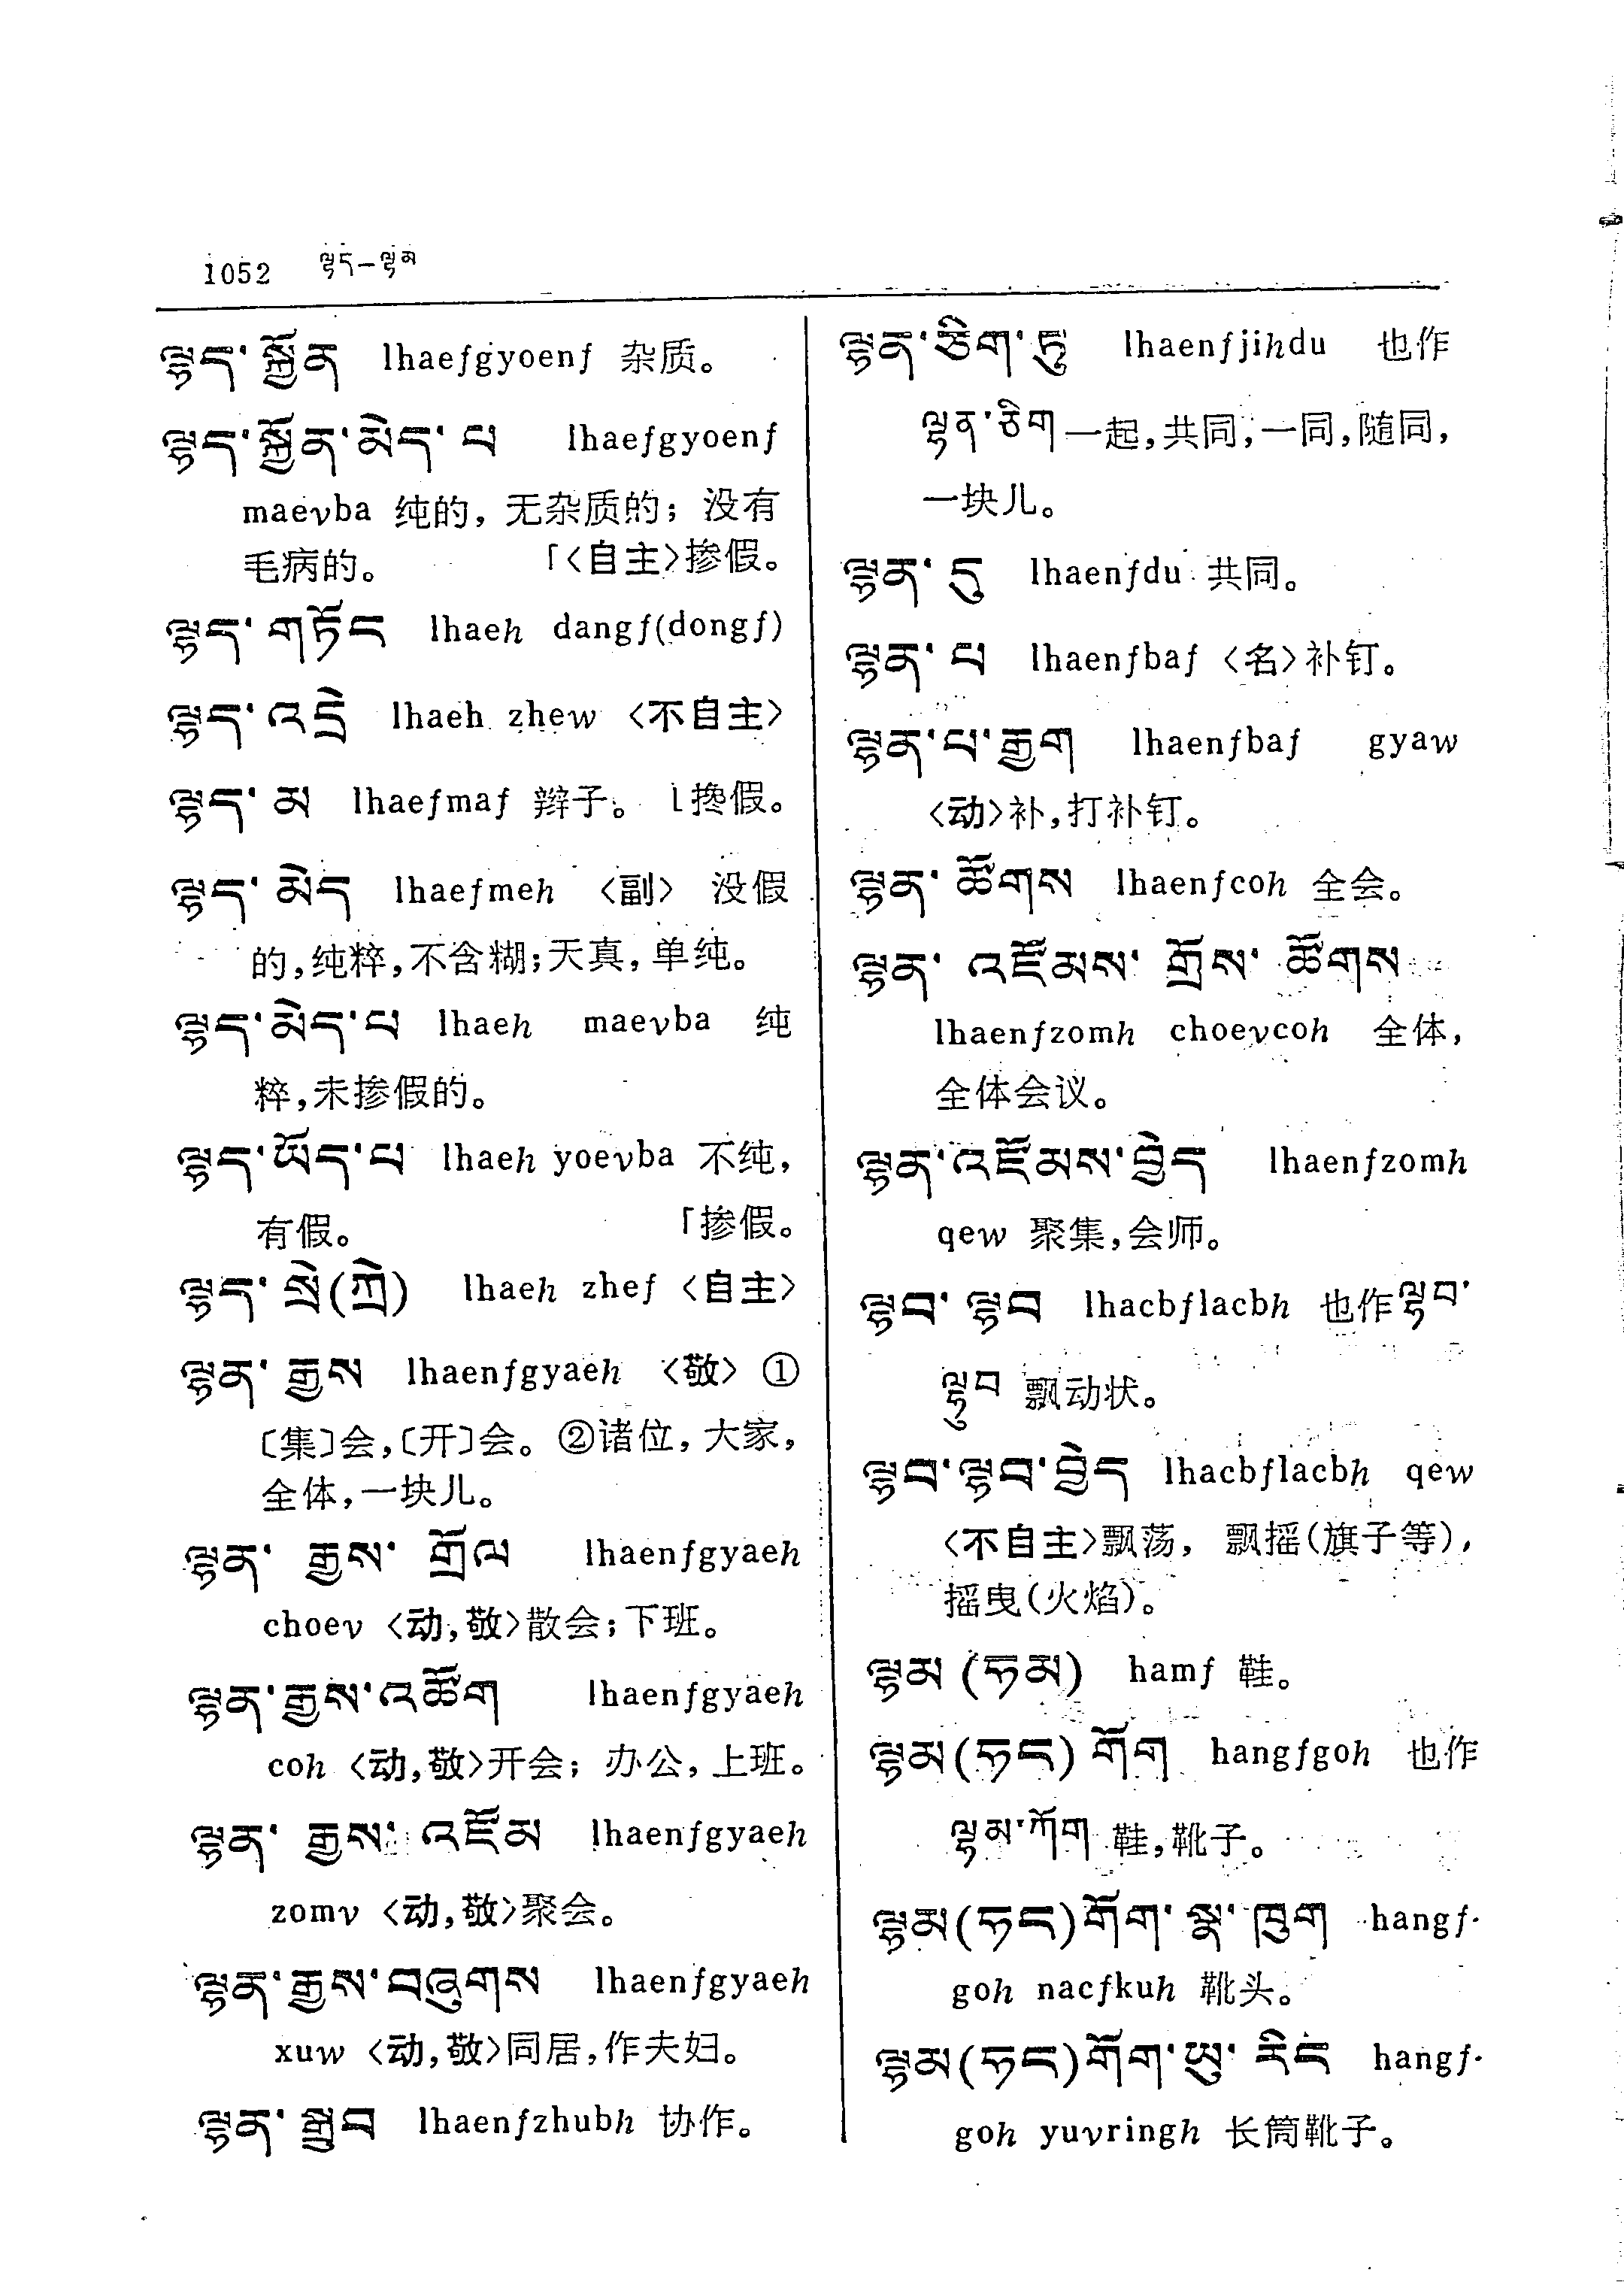 1052 ལྷད—ལྷམ
ལྷད་སྐྱོན lhaefgyoenf 杂质。
ལྷད་སྐྱོན་མེད་པ lhaefgyoenf
maevba 纯的，无杂质的；没有
毛病的。 「〈自主〉掺假。
ལྷད་གཏོང lhaeh dangf(dongf)
ལྷད་འདྲེ lhaeh zhew 〈不自主〉
ལྷད་མ lhaefmaf 辫子。 ⌊搀假。
ལྷད་མེད lhaefmeh 〈副〉 没假
的，纯粹，不含糊；天真，单纯。
ལྷད་མེད་པ lhaeh maevba 纯
粹，未掺假的。
ལྷད་ཡོད་པ lhaeh yoevba 不纯，
有假。 「掺假。
ལྷད་སྲེ(ཀྲེ) lhaeh zhef 〈自主〉
ལྷན་རྒྱས lhaenfgyaeh 〈敬〉 ①
〔集〕会，〔开〕会。②诸位，大家，
全体，一块儿。
ལྷན་རྒྱས་གྲོལ lhaenfgyaeh
choev 〈动，敬〉散会；下班。
ལྷན་རྒྱས་འཚོག lhaenfgyaeh
coh 〈动，敬〉开会；办公，上班。
ལྷན་རྒྱས་འཛོམ lhaenfgyaeh
zomv 〈动，敬〉聚会。
ལྷན་རྒྱས་བཞུགས lhaenfgyaeh
xuw 〈动，敬〉同居，作夫妇。
ལྷན་སྒྲུབ lhaenfzhubh 协作。
ལྷན་ཅིག་ཏུ lhaenfjihdu 也作
ལྷན་ཅིག 一起，共同，一同，随同，
一块儿。
ལྷན་དུ lhaenfdu 共同。
ལྷན་པ lhaenfbaf 〈名〉补钉。
ལྷན་པ་རྒྱག lhaenfbaf gyaw
〈动〉补，打补钉。
ལྷན་ཚོགས lhaenfcoh 全会。
ལྷན་འཛོམས་གྲོས་ཚོགས
lhaenfzomh choevcoh 全体，
全体会议。
ལྷན་འཛོམས་བྱེད lhaenfzomh
qew 聚集，会师。
ལྷབ་ལྷབ lhacbflacbh 也作ལྷབ་
ལྷུབ 飘动状。
ལྷབ་ལྷབ་བྱེད lhacbflacbh qew
〈不自主〉飘荡，飘摇（旗子等），
摇曳（火焰）。
ལྷམ (ཧམ) hamf 鞋。
ལྷམ(ཧང)གོག hangfgoh 也作
ལྷམ་ཀོག 鞋，靴子。
ལྷམ(ཧང)གོག་སྣ་ཁུག hangf-
goh nacfkuh 靴头。
ལྷམ(ཧང)གོག་ཡུ་རིང hangf-
goh yuvringh 长筒靴子。